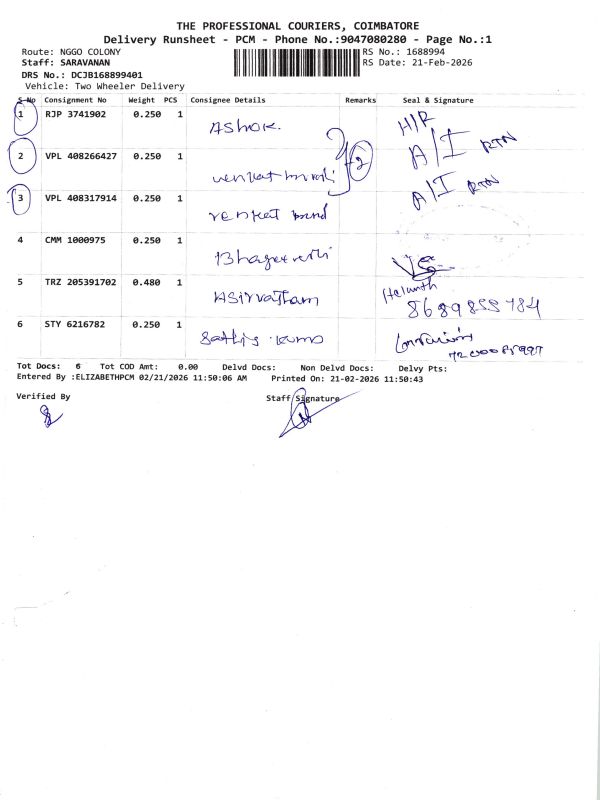 THE PROFESSIONAL COURIERS, COIMBATORE
Delivery Runsheet - PCM - Phone No.:9047080280 - Page No.:1
Route: NGGO COLONY RS No.: 1688994
Staff: SARAVANAN RS Date: 21-Feb-2026
DRS No.: DCJB168899401
Vehicle: Two Wheeler Delivery
S No Consignment No Weight PCS Consignee Details Remarks Seal & Signature
1 RJP 3741902 0.250 1 Ashok. H/R
2 VPL 408266427 0.250 1 venkat 2 A/I RTN
3 VPL 408317914 0.250 1 venkat A/I RTN
4 CMM 1000975 0.250 1
5 TRZ 205391702 0.480 1 Asirvatham
8689855784
6 STY 6216782 0.250 1
Tot Docs: 6 Tot COD Amt: 0.00 Delvd Docs: Non Delvd Docs: Delvy Pts:
Entered By :ELIZABETHPCM 02/21/2026 11:50:06 AM Printed On: 21-02-2026 11:50:43
Verified By Staff Signature